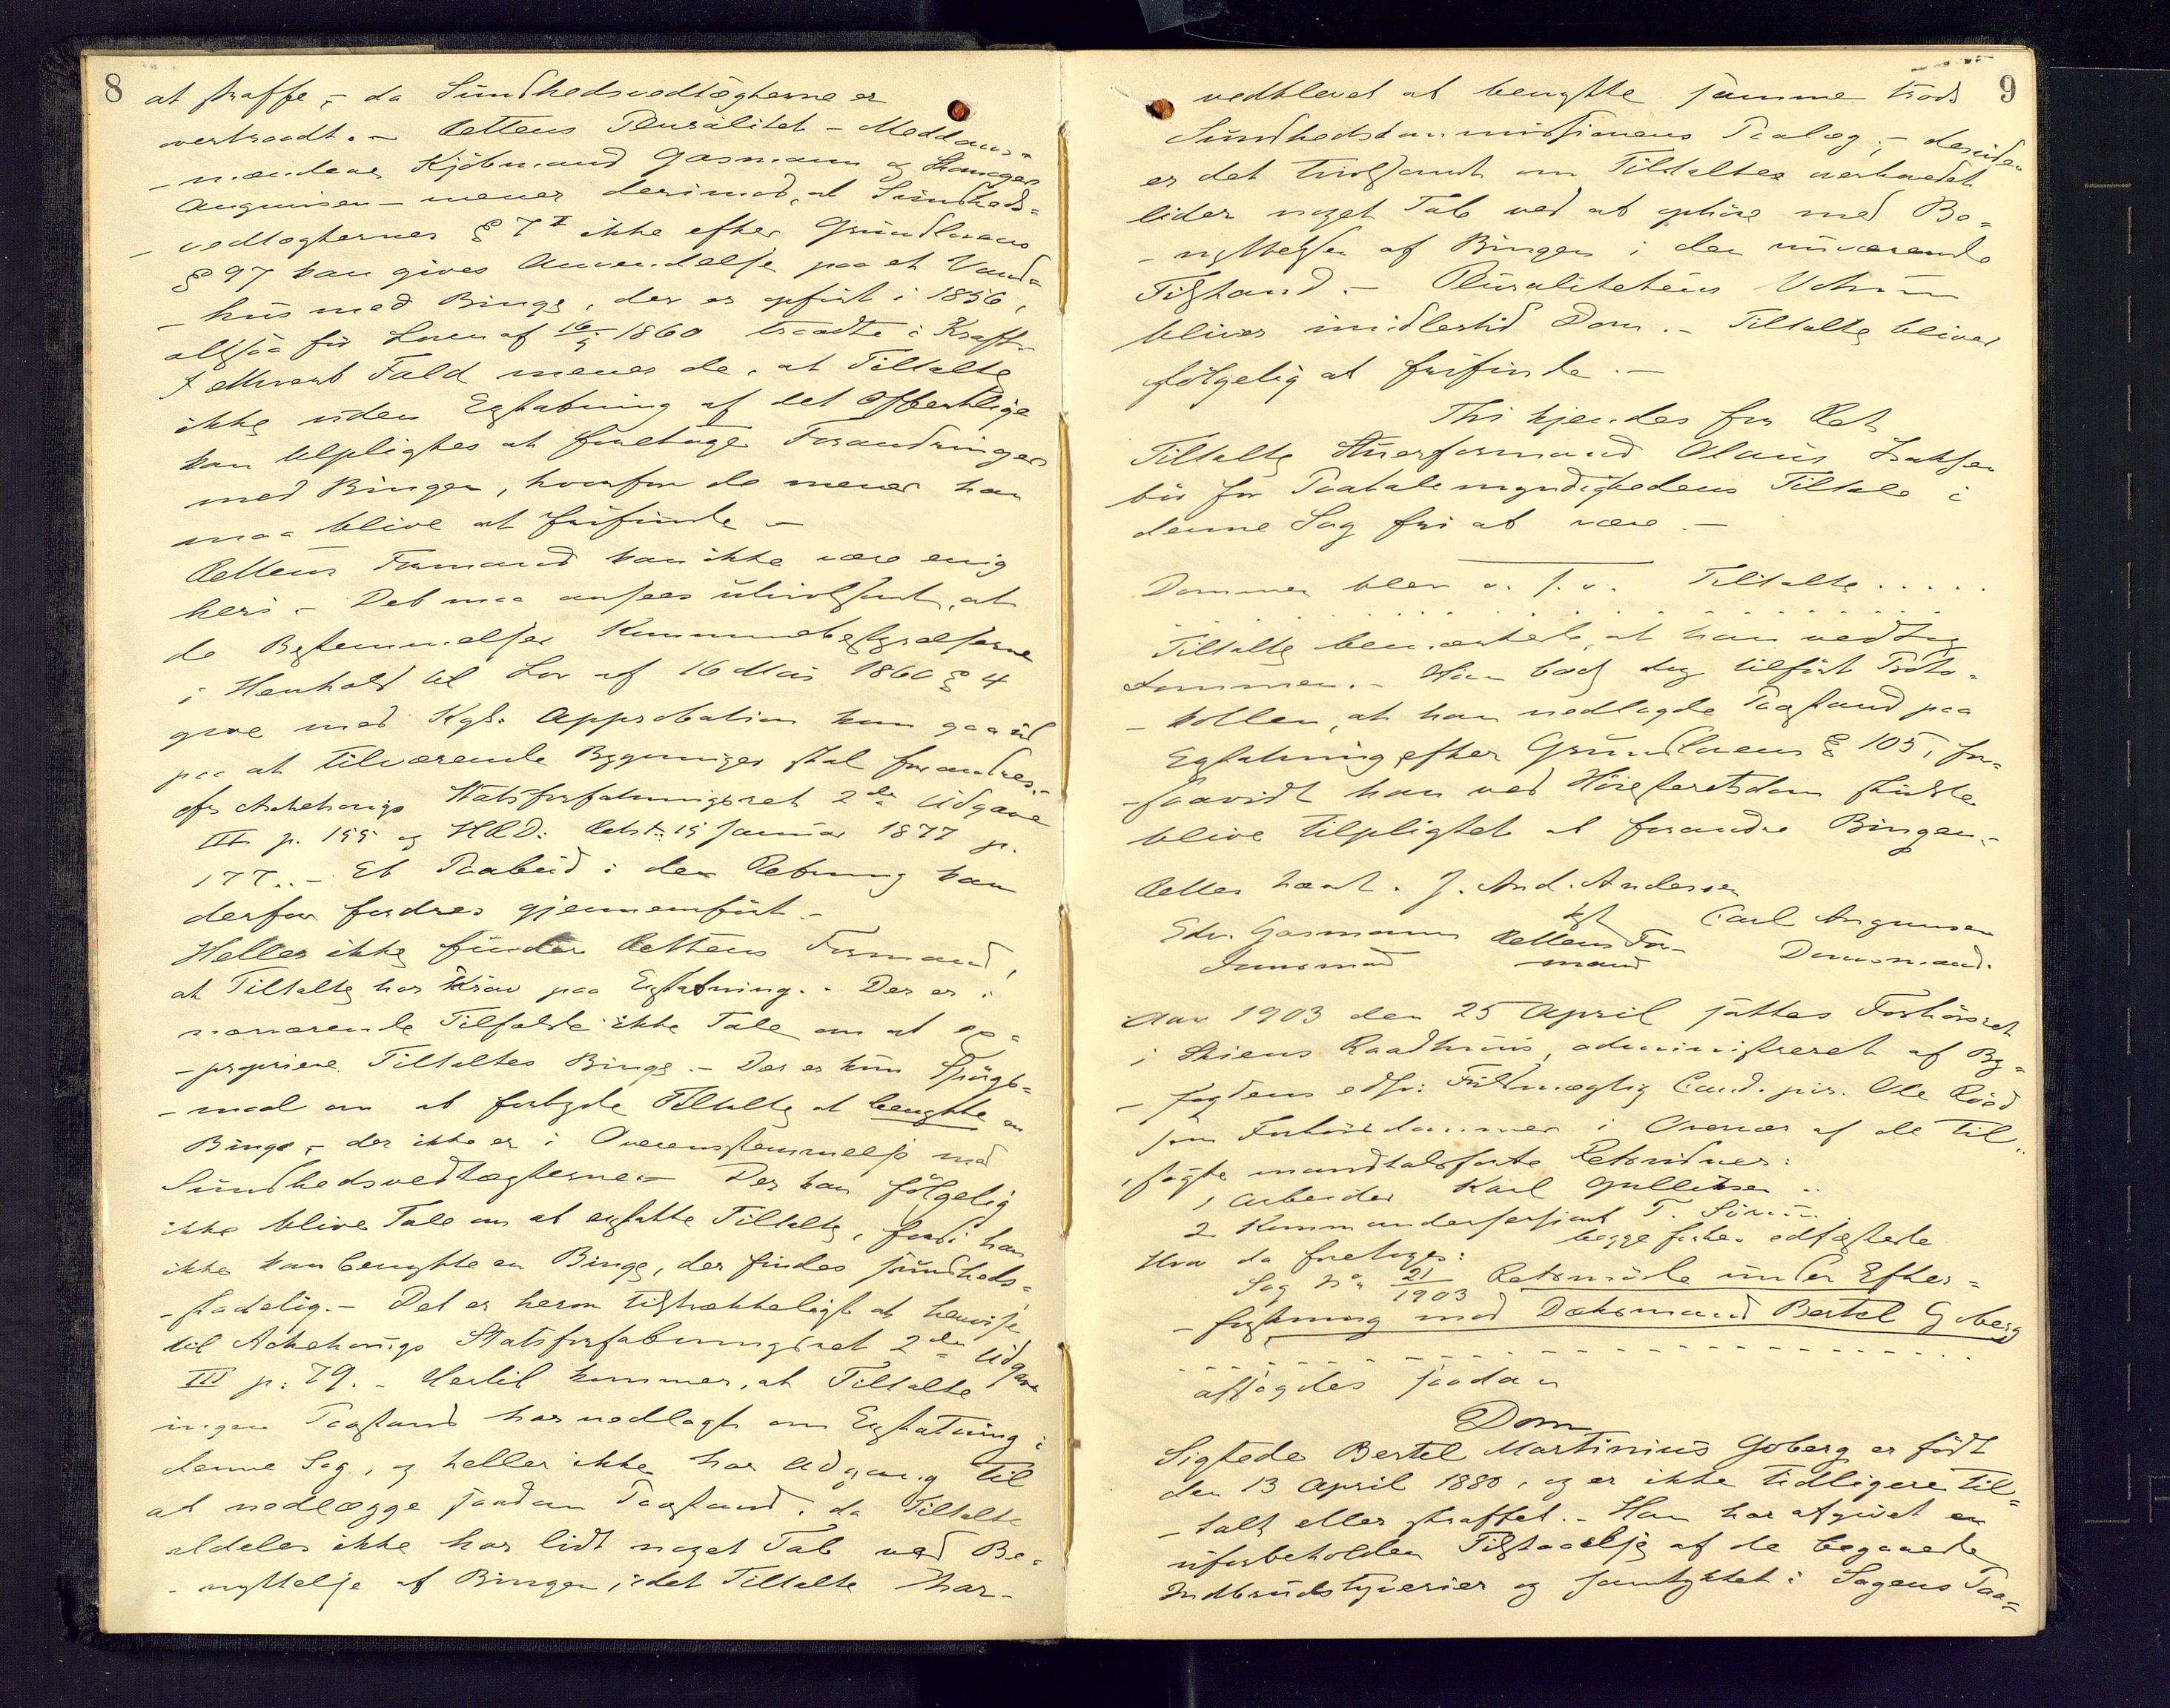 8
at straffe, – da Sundhedsvedtægterne er
overtraadt. – Rettens Pluralitet – Meddoms-
-mændene Kjøbmand Gasmann og
– mener derimod, at Sundheds-
-vedtægternes § 7 I ikke efter Grundlovens
§ 97 kan gives Anvendelse paa et Vand-
-hus med Binge, der er opført i 1856,
altsaa før Loven af 16/5 1860 traadte i Kraft. –
I ethvert Fald mener de, at Tiltalte
ikke uden Erstatning af det Offentlige
kan tilpligtes at foretage Forandringer
med Bingen, hvorfor de mener han
maa blive at frifinde –
Rettens Formand kan ikke være enig
heri. – Det maa ansees utvivlsomt, at
de Bestemmelser Kommunebestyrelserne
i Henhold til Lov af 16 Mai 1860 § 4
give med Kgl. Approbation kan gaa ud
paa at tilværende Bygninger skal forandres. –
cfr Aschehougs Statsforfatningsret 2den Udgave
III p. 155 og HRD: Retst. 15 Januar 1877 p.
177. – Et Paabud i den Retning kan
derfor fordres gjennemført. –
Heller ikke finder Rettens Formand,
at Tiltalte har Krav paa Erstatning. – Der er i
nærværende Tilfælde ikke Tale om at ex-
-propriere Tiltaltes Binge. – Der er kun Spørgs-
-maal om at forbyde Tiltalte at benytte en
Binge, – der ikke er i Overensstemmelse med
Sundhedsvedtægterne. – Der kan følgelig
ikke blive Tale om at erstatte Tiltalte, fordi han
ikke kan benytte en Binge, der findes sundheds-
-skadelig. – Det er herom tilstrækkeligt at henvise
til Aschehougs Statsforfatningsret 2den Udgave
III p. 79. – Hertil kommer, at Tiltalte
ingen Paastand har nedlagt om Erstatning i
denne Sag, og heller ikke har Adgang til
at nedlægge saadan Paastand, da Tiltalte
aldeles ikke har lidt noget Tab ved Be-
-nyttelse af Bingen, idet Tiltalte har –
9
vedblevet at benytte samme trods
Sundhedskommissionens Paalæg, – desuden
er det tvivlsomt om Tiltalte overhovedet
lider noget Tab ved at ophøre med Be-
-nyttelsen af Bingen i den nuværende
Tilstand. – Pluralitetens Votum
bliver imidlertid Dom. – Tiltalte bliver
følgelig at frifinde. –
Thi kjendes for Ret
Tiltalte Styrformand Olaus Isaksen
bør for Paatalemyndighedens Tiltale i
denne Sag fri at være. –
Dommen blev o. s. v. Tiltalte . . . . .
Tiltalte bemærkede, at han vedtog
Dommen. – Han bad dog tilført Proto-
-kollen, at han nedlagde Paastand paa
Erstatning efter Grundlovens § 105, for-
-saavidt han ved Høiesteretsdom skulde
blive tilpligtet at forandre Bingen. –
Retten hævet. J. And. Andersen
kst Carl
Edv. Gasmann Rettens For-
Domsmand mand Domsmand.
Aar 1903 den 25 April sattes Forhørsret
i Skiens Raadhuus, administreret af By-
-fogdens edsv. Fuldmægtig Cand. jur. Ole Röed
som Forhørsdommer i Overvær af de til-
-sagte mandtalsførte Retsvidner:
1 Arbeider Karl Gulliksen
2 Kommandersersjant T.
begge før edfæstede
Hvor da foretages:
Sag No 21/1903 Retsmøde under Efter-
-forskning mod Dæksmand Bertel Goberg
. . . . . . . . . . . . . . . . .
afsagdes saadan
Dom
Sigtede Bertel Martinius Goberg er født
den 13 April 1880, og er ikke tidligere til-
-talt eller straffet. – Han har afgivet en
uforbeholden Tilstaaelse af de begaaede
Indbrudstyverier og samtykket i Sagens Paa-